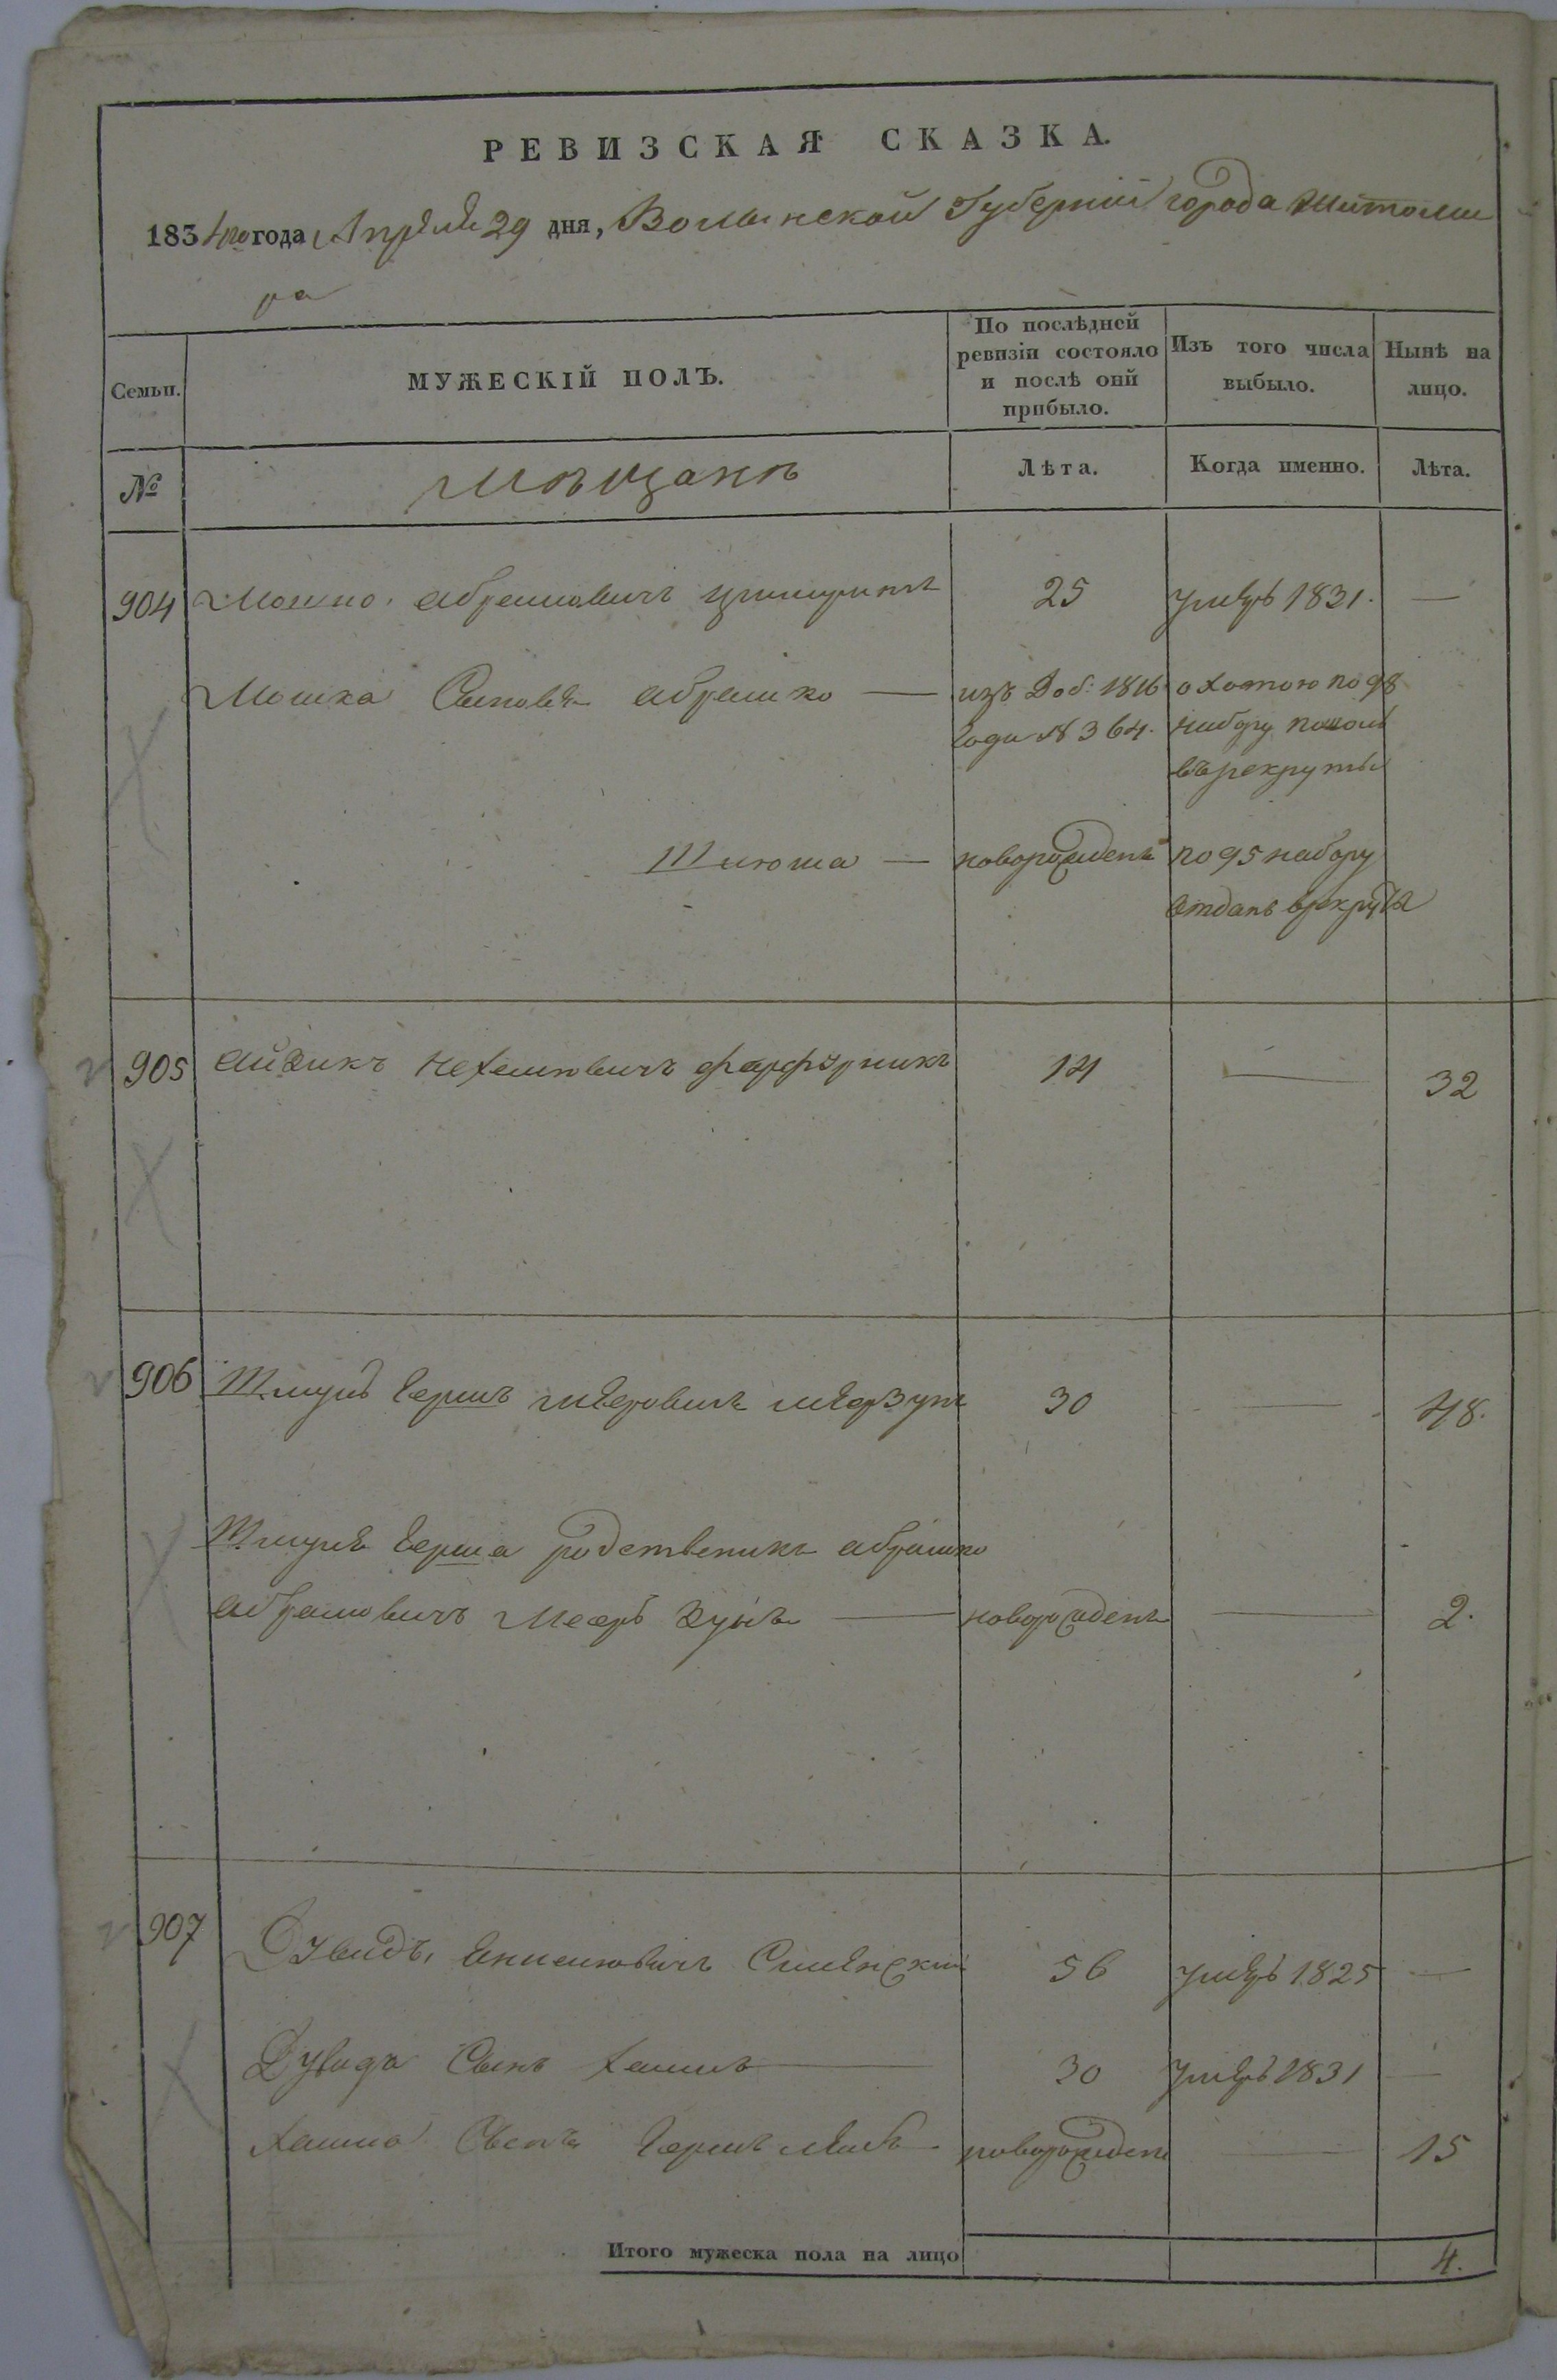 РЕВИЗСКАЯ СКАЗКА.
1834го года Апреля 29 дня, Волынской Губернии города Житоми
ра
Семьи.
МУЖЕСКІЙ ПОЛЪ.
По послѣдней
ревизіи состояло
и послѣ оной
прибыло.
Изъ того числа
выбыло.
Нынѣ на
лицо.
№
мѣщанъ
Лѣта.
Когда именно.
Лѣта.
904 Мошко Абрамовичъ 25 умеръ 1831. —
Мошка Сыновья Абрамко — изъ Доб: 1816 охотою по 98
года № 364. набору пошолъ
въ рекруты
Шлюма — новорожденъ по 95 набору
отданъ врекруты
905 Айзикъ Нехемовичъ Фарфурникъ 14 — 32
906 Шмуль Гершъ Мееровичъ 30 — 48.
Шмуля Герша родственикъ Абрамко
Абрамовичъ — новорожденъ — 2.
907 Дувидъ 56 умеръ 1825 —
Дувида Сынъ Хаимъ — 30 умеръ 1831 —
Хаима Сынъ Гершъ Лейбъ новорожденъ — 15
Итого мужеска пола на лицо 4.